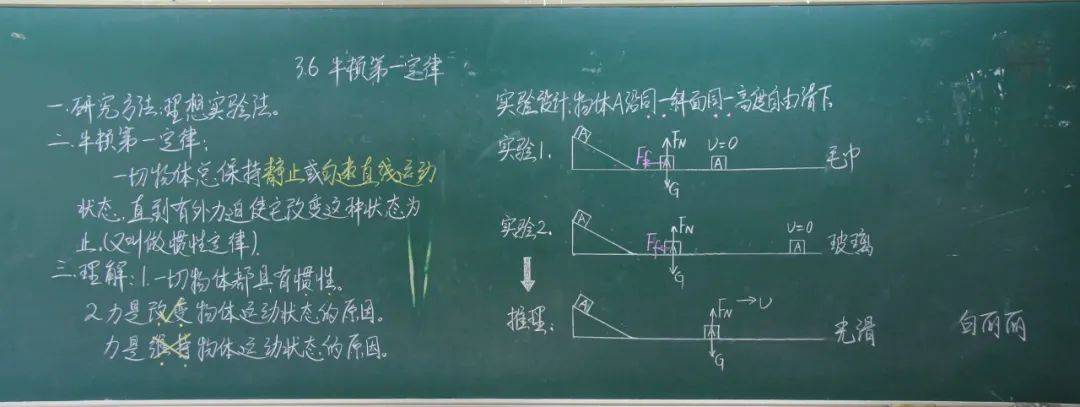 3.6 牛顿第一定律
一.研究方法:理想实验法。
二.牛顿第一定律:
一切物体总保持静止或匀速直线运动
状态,直到有外力迫使它改变这种状态为
止.(又叫做惯性定律).
三.理解:1.一切物体都具有惯性。
2.力是改变物体运动状态的原因。
力是维持物体运动状态的原因。
实验设计:物体A沿同一斜面同一高度自由滑下
实验1.
A
Ff
FN
G
υ=0
A
毛巾
实验2.
A
Ff
FN
G
υ=0
A
玻璃
推理:
A
FN
→υ
G
光滑
白丽丽